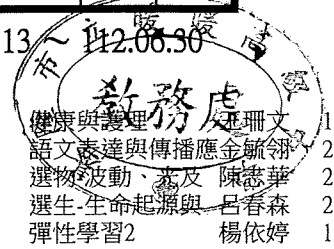 13 112.06.30
市 暖暖高級
教務處
健康與護理 珊文 1
語文表達與傳播應金毓翎 2
選物-波動、光及 陳志華 2
選生-生命起源與 呂春森 2
彈性學習2 楊依婷 1